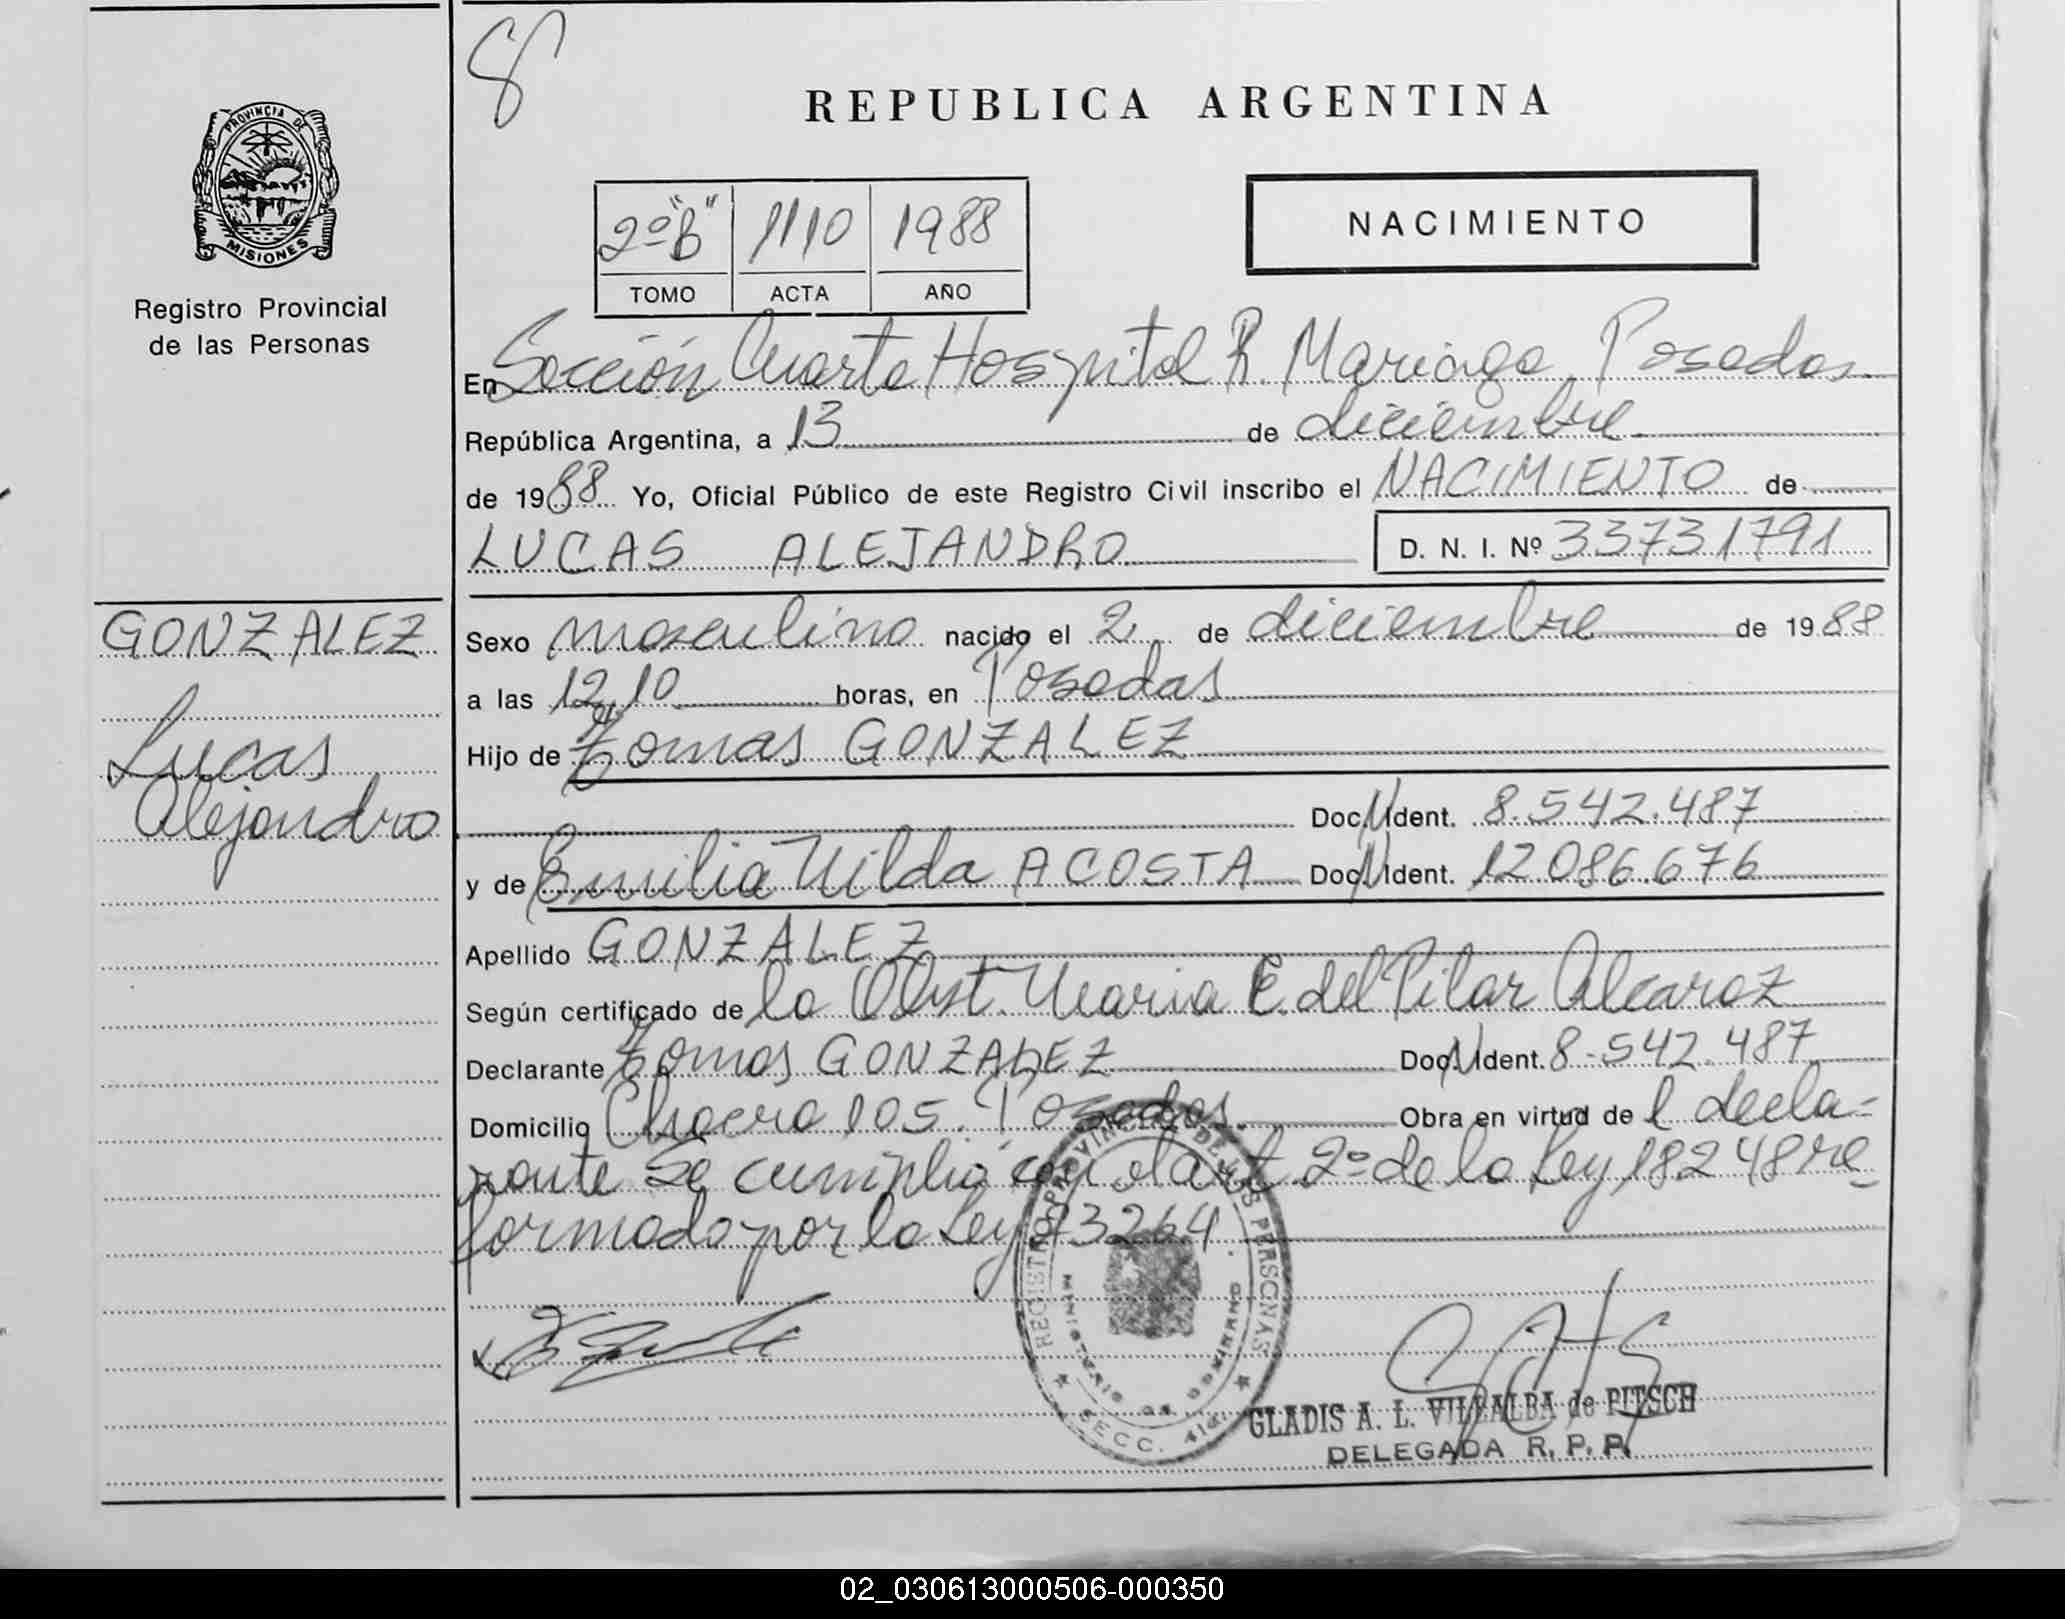 8
PROVINCIA DE
MISIONES
Registro Provincial
de las Personas
REPUBLICA ARGENTINA
2º "B" 1110 1988
TOMO ACTA AÑO
NACIMIENTO
En Sección Cuarta Hospital R. Mariaga Posadas
República Argentina, a 13 de diciembre
de 1988 Yo, Oficial Público de este Registro Civil inscribo el NACIMIENTO de
LUCAS ALEJANDRO D. N. I. Nº 33731791
GONZALEZ
Lucas
Alejandro
Sexo masculino nacido el 2 de diciembre de 1988
a las 12,10 horas, en Posadas
Hijo de Tomas GONZALEZ
Doc. N Ident. 8.542.487
y de Emilia Nilda ACOSTA Doc. N Ident. 12086.676
Apellido GONZALEZ
Según certificado de la Obst. Maria E. del Pilar Alcaraz
Declarante Tomas GONZALEZ Doc. N Ident. 8.542.487
Domicilio 105. Posadas. Obra en virtud de l decla-
rante Se cumplió con el art 2º de la Ley 18248 re
formada por la Ley 23264
REGISTRO PROVINCIAL DE LAS PERSONAS
MINISTERIO DE GOBIERNO
SECC. 4ta
GLADIS A. L. VILLALBA de PITSCH
DELEGADA R. P. P.
02_030613000506-000350